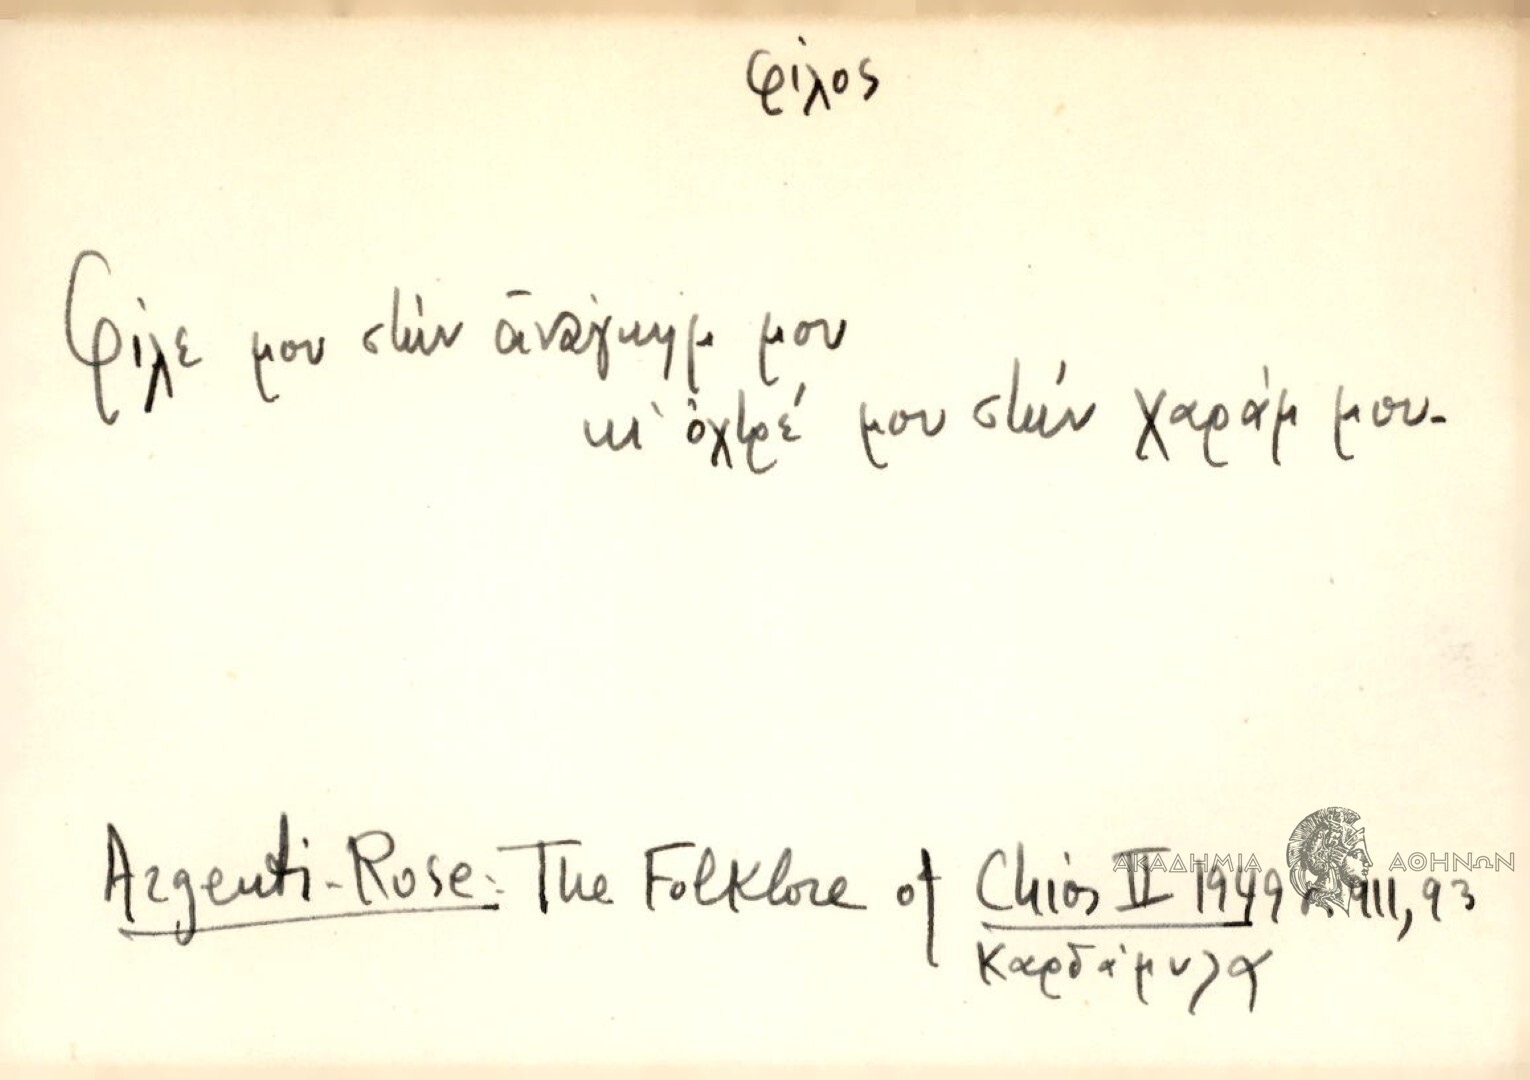 φίλος
Φίλε μου στὴν ἀνάγκημ μου
κι' ὀχτρέ μου στὴν χαράμ μου.
Argenti-Rose: The Folklore of Chios II 1949 σ. 911, 93
Καρδάμυλα
ΑΚΑΔΗΜΙΑ ΑΘΗΝΩΝ